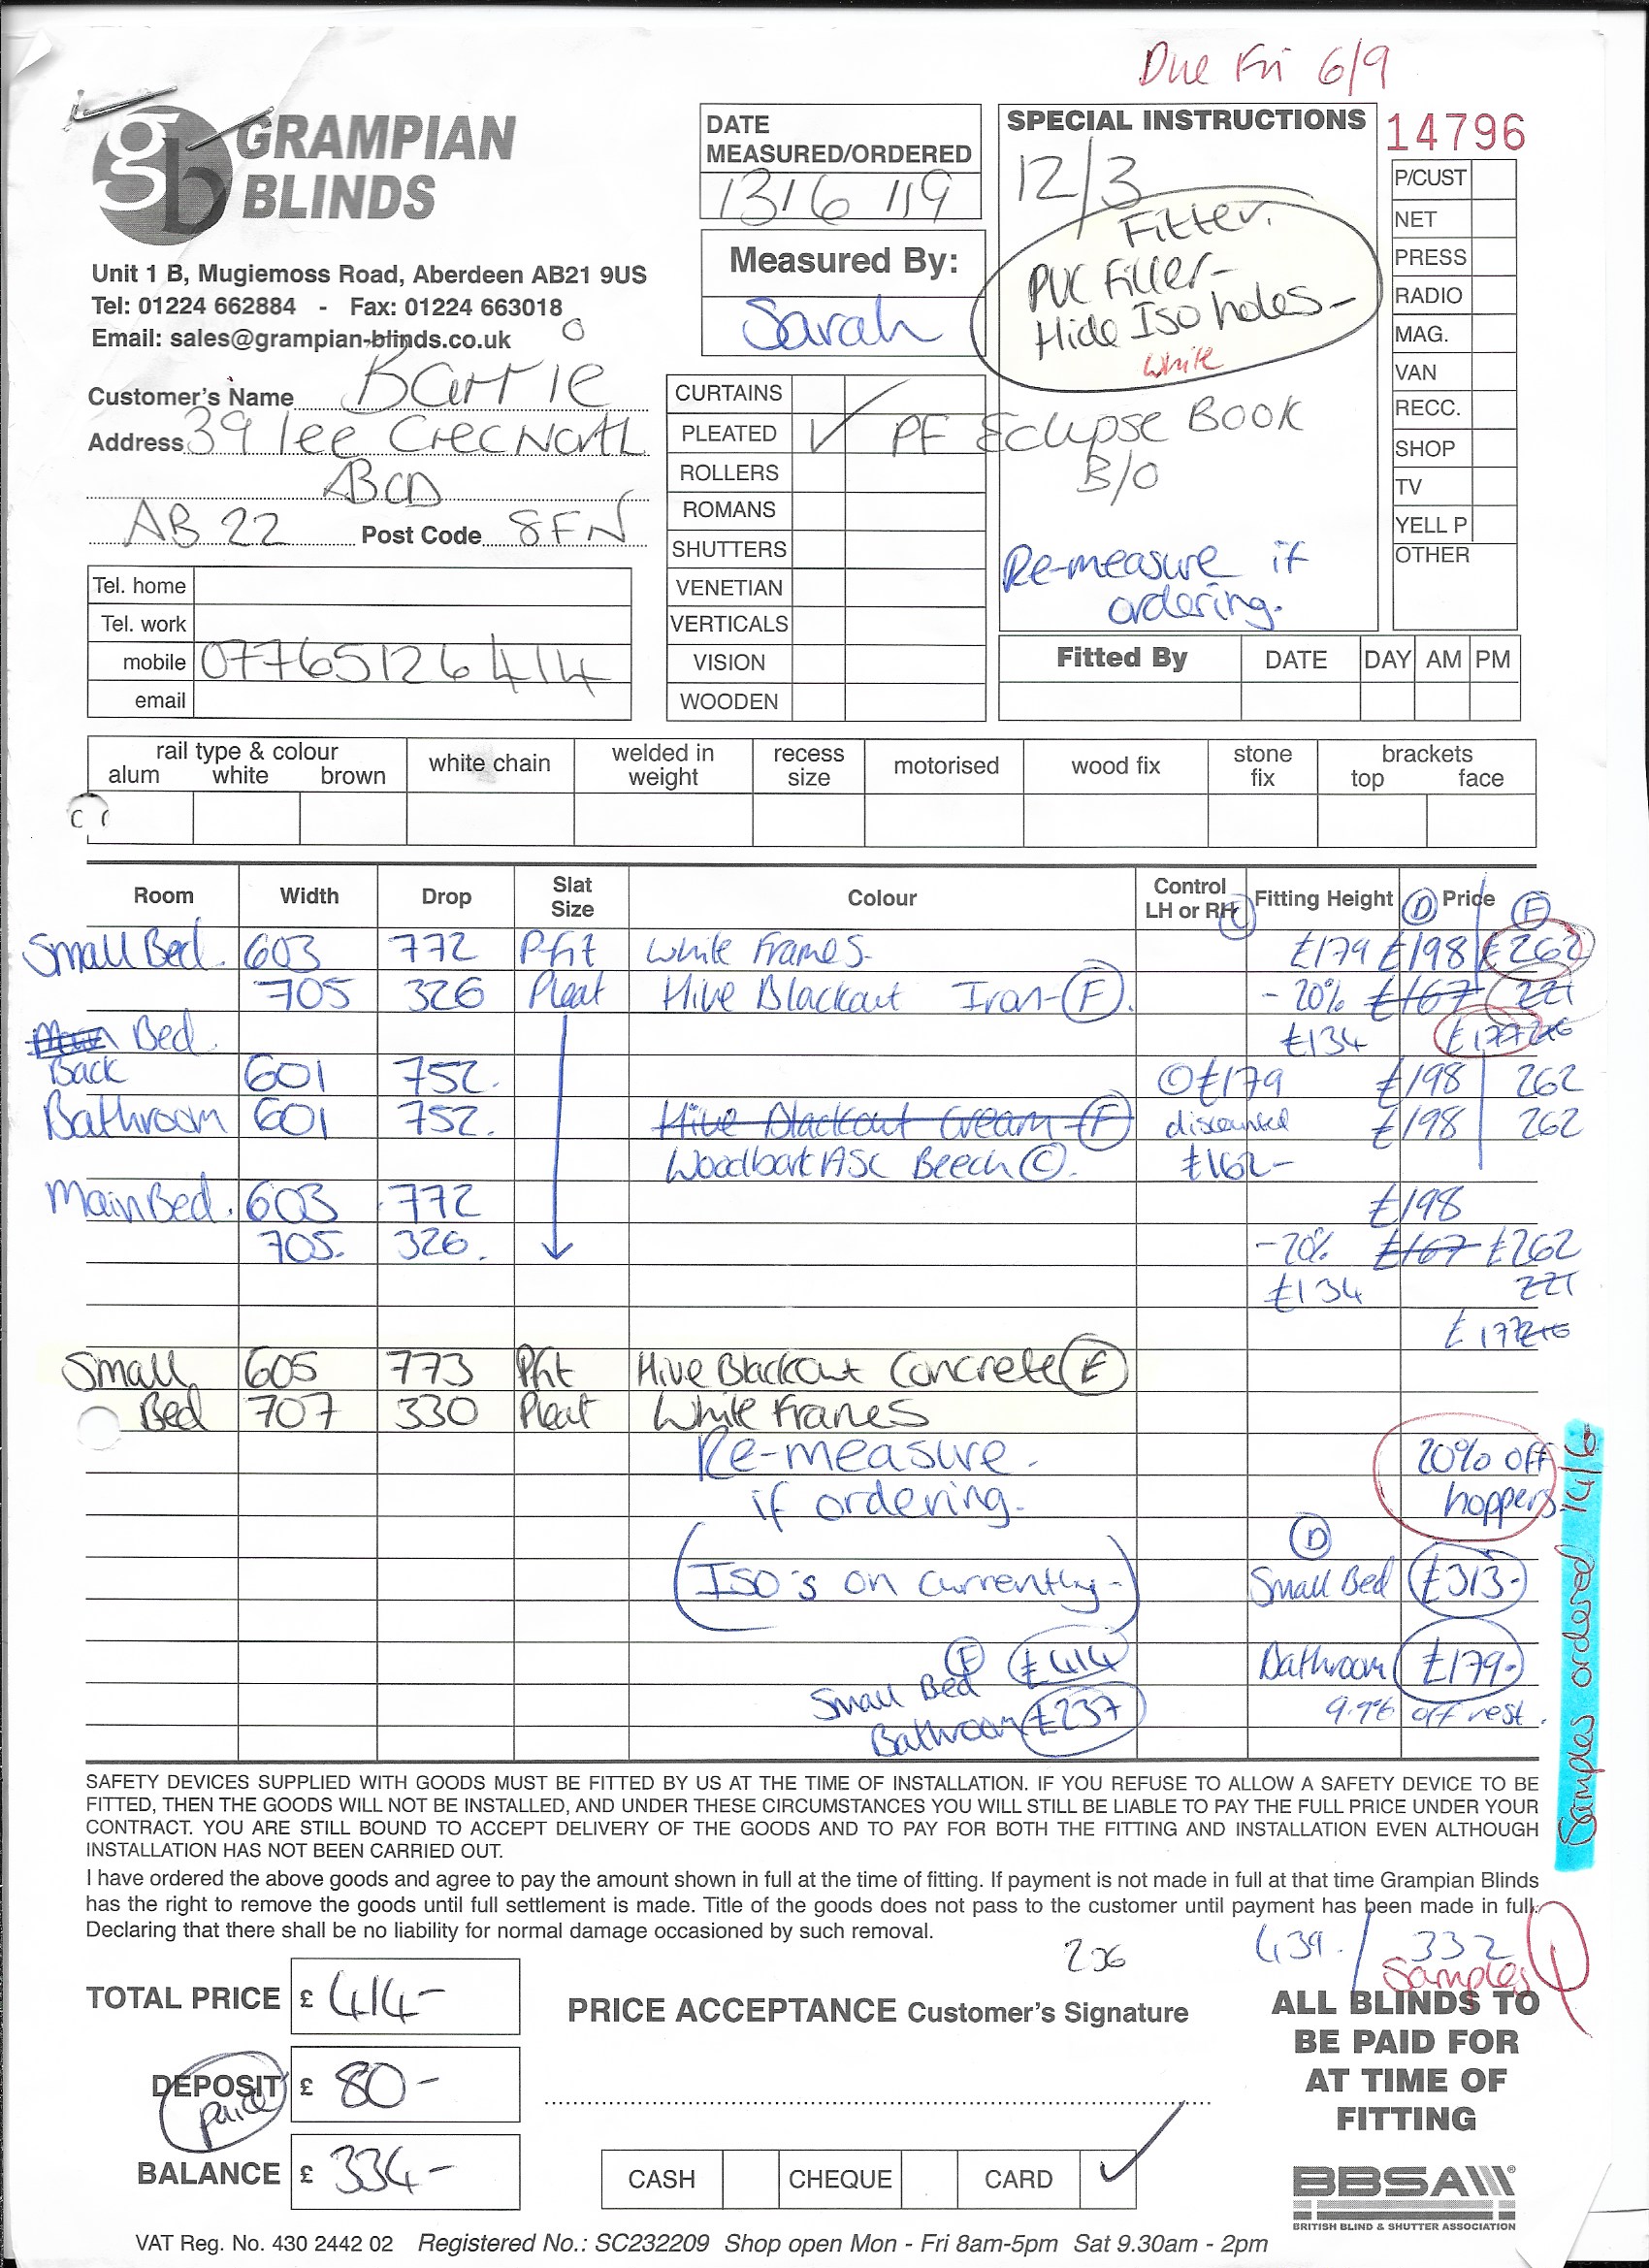 Due Fri 6/9
gb GRAMPIAN BLINDS
Unit 1 B, Mugiemoss Road, Aberdeen AB21 9US
Tel: 01224 662884 - Fax: 01224 663018
Email: sales@grampian-blinds.co.uk
Customer's Name Barrie
Address 39 lee Crec North
BCD
AB 22 Post Code 8FN
Tel. home
Tel. work
mobile 07765126414
email
DATE MEASURED/ORDERED
13/6/19
Measured By:
Sarah
CURTAINS
PLEATED ✓ PF Eclipse Book
B/O
ROLLERS
ROMANS
SHUTTERS
VENETIAN
VERTICALS
VISION
WOODEN
SPECIAL INSTRUCTIONS
12/3
Fitter.
PVC Filler-
Hide Iso holes-
White
Re-measure if
ordering.
14796
P/CUST
NET
PRESS
RADIO
MAG.
VAN
RECC.
SHOP
TV
YELL P
OTHER
Fitted By DATE DAY AM PM
rail type & colour
alum white brown
white chain
welded in weight
recess size
motorised
wood fix
stone fix
brackets
top face
Room Width Drop Slat Size Colour Control LH or RH Fitting Height Price
C D F
Small Bed. 603 772 Pfit White Frames. £179 £198 £262
705 326 Pleat Hive Blackout Iron-F. -20% £167 221
Bed. £134 £177
Back 601 752. C £179 £198 262
Bathroom 601 752. Hive Blackout Cream-F discounted £198 262
Woodbark ASC Beech C. £162-
Main Bed. 603 772 £198
705. 326. -20% £167 £262
£134 221
£177
Small 605 773 Pfit Hive Blackout Concrete E
Bed 707 330 Pleat White Frames
Re-measure. 20% off
if ordering. hoppers.
D
(Iso's on currently-) Small Bed £313-
F
Small Bed £414 Bathroom £179-
Bathroom £237 9.9% off rest.
Samples ordered 14/6
SAFETY DEVICES SUPPLIED WITH GOODS MUST BE FITTED BY US AT THE TIME OF INSTALLATION. IF YOU REFUSE TO ALLOW A SAFETY DEVICE TO BE
FITTED, THEN THE GOODS WILL NOT BE INSTALLED, AND UNDER THESE CIRCUMSTANCES YOU WILL STILL BE LIABLE TO PAY THE FULL PRICE UNDER YOUR
CONTRACT. YOU ARE STILL BOUND TO ACCEPT DELIVERY OF THE GOODS AND TO PAY FOR BOTH THE FITTING AND INSTALLATION EVEN ALTHOUGH
INSTALLATION HAS NOT BEEN CARRIED OUT.
I have ordered the above goods and agree to pay the amount shown in full at the time of fitting. If payment is not made in full at that time Grampian Blinds
has the right to remove the goods until full settlement is made. Title of the goods does not pass to the customer until payment has been made in full.
Declaring that there shall be no liability for normal damage occasioned by such removal.
206 439. / 332
Samples
TOTAL PRICE £ 414-
DEPOSIT £ 80-
paid
BALANCE £ 334-
PRICE ACCEPTANCE Customer's Signature
CASH CHEQUE CARD ✓
ALL BLINDS TO
BE PAID FOR
AT TIME OF
FITTING
BBSA
BRITISH BLIND & SHUTTER ASSOCIATION
VAT Reg. No. 430 2442 02 Registered No.: SC232209 Shop open Mon - Fri 8am-5pm Sat 9.30am - 2pm